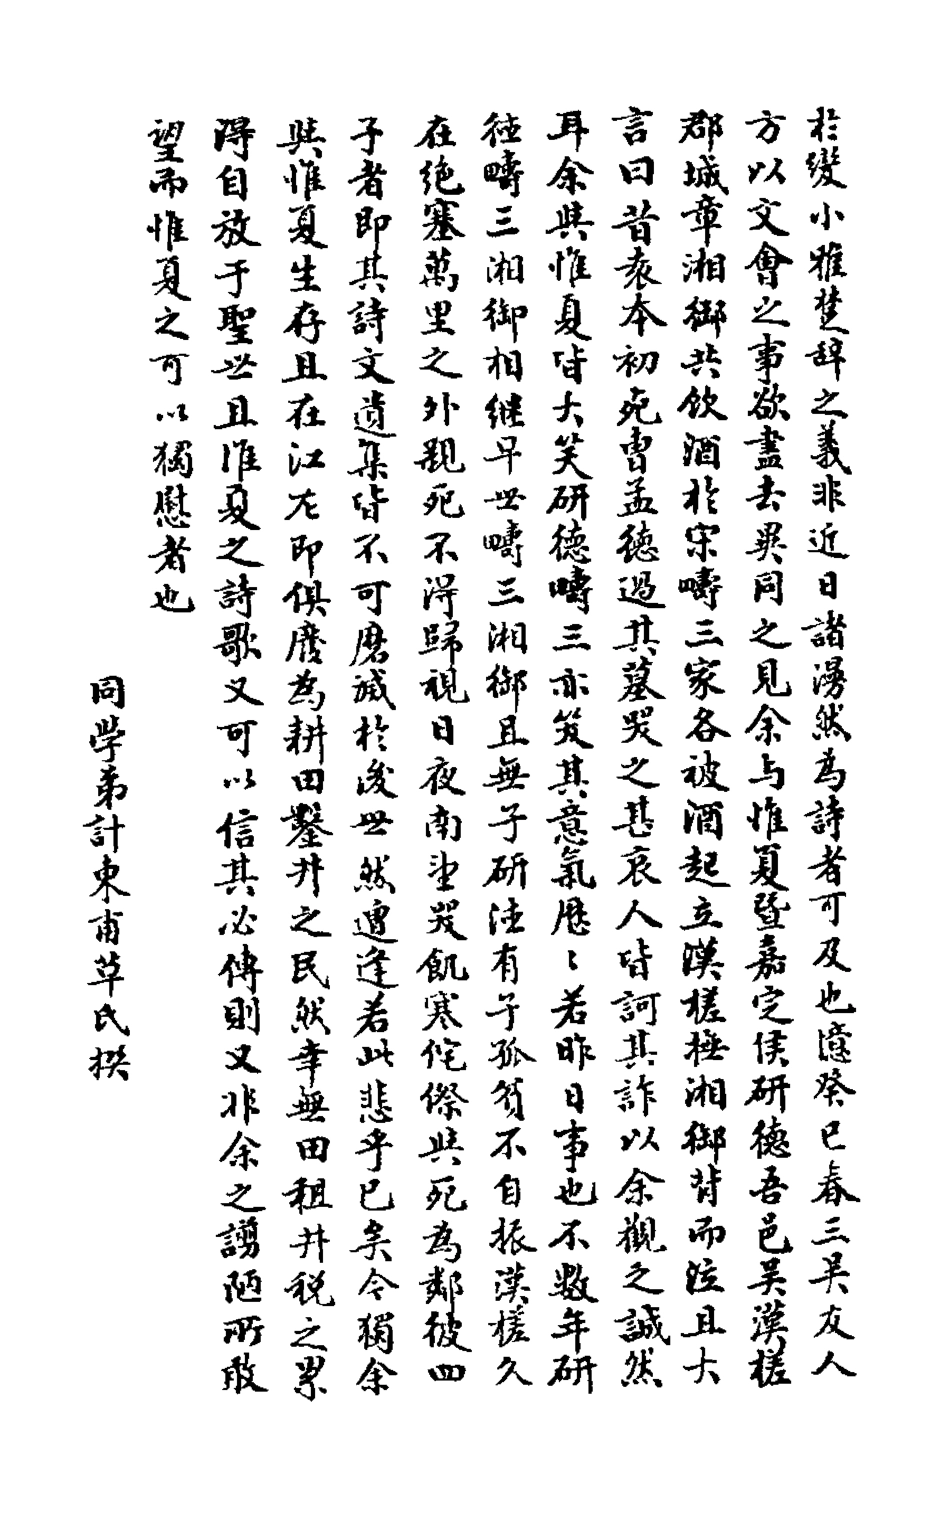 於變小雅楚辭之義非近日諸湧然為詩者可及也憶癸巳春三吳友人
方以文會之事欲盡去異同之見余与惟夏暨嘉定侯研德吾邑吳漢槎
郡城章湘御共飲酒於宋疇三家各被酒起立漢槎撫湘御背而泣且大
言曰昔袁本初死曹孟德過其墓哭之甚哀人皆訶其詐以余觀之誠然
耳余與惟夏皆大笑研德疇三亦笑其意氣歷〻若昨日事也不數年研
德疇三湘御相継早世疇三湘御且無子研德有子孤貧不自振漢槎久
在絶塞萬里之外親死不得歸視日夜南望哭飢寒侘傺與死為鄰彼四
子者即其詩文遺集皆不可磨滅於後世然遭逢若此悲乎已矣今獨余
與惟夏生存且在江左即俱廢為耕田鑿井之民然幸無田租井税之累
得自放于聖世且惟夏之詩歌又可以信其必傳則又非余之謭陋所敢
望而惟夏之可以獨慰者也
同学弟計東甫草氏撰